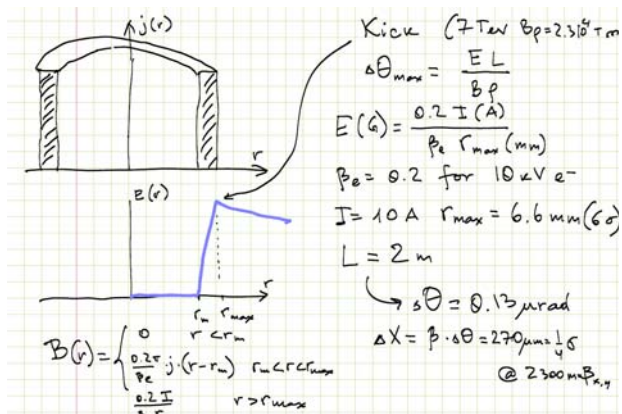 j(r)
r
E(r)
r
r_m r_max
B(r) = { 0 r < r_m
0.2π/β_e j·(r-r_m) r_m<r<r_max
0.2 I r > r_max
Kick (7 TeV Bρ=2.3 10^4 T m
ΔΘ_max = E L / Bρ
E(G) = 0.2 I (A) / β_e r_max (mm)
β_e = 0.2 for 10 kV e-
I = 10 A r_max = 6.6 mm (6σ)
L = 2 m
ΔΘ = 0.13 μrad
ΔX = β·ΔΘ = 270 μm = 1/4 σ
@ 2300 m β_x,y